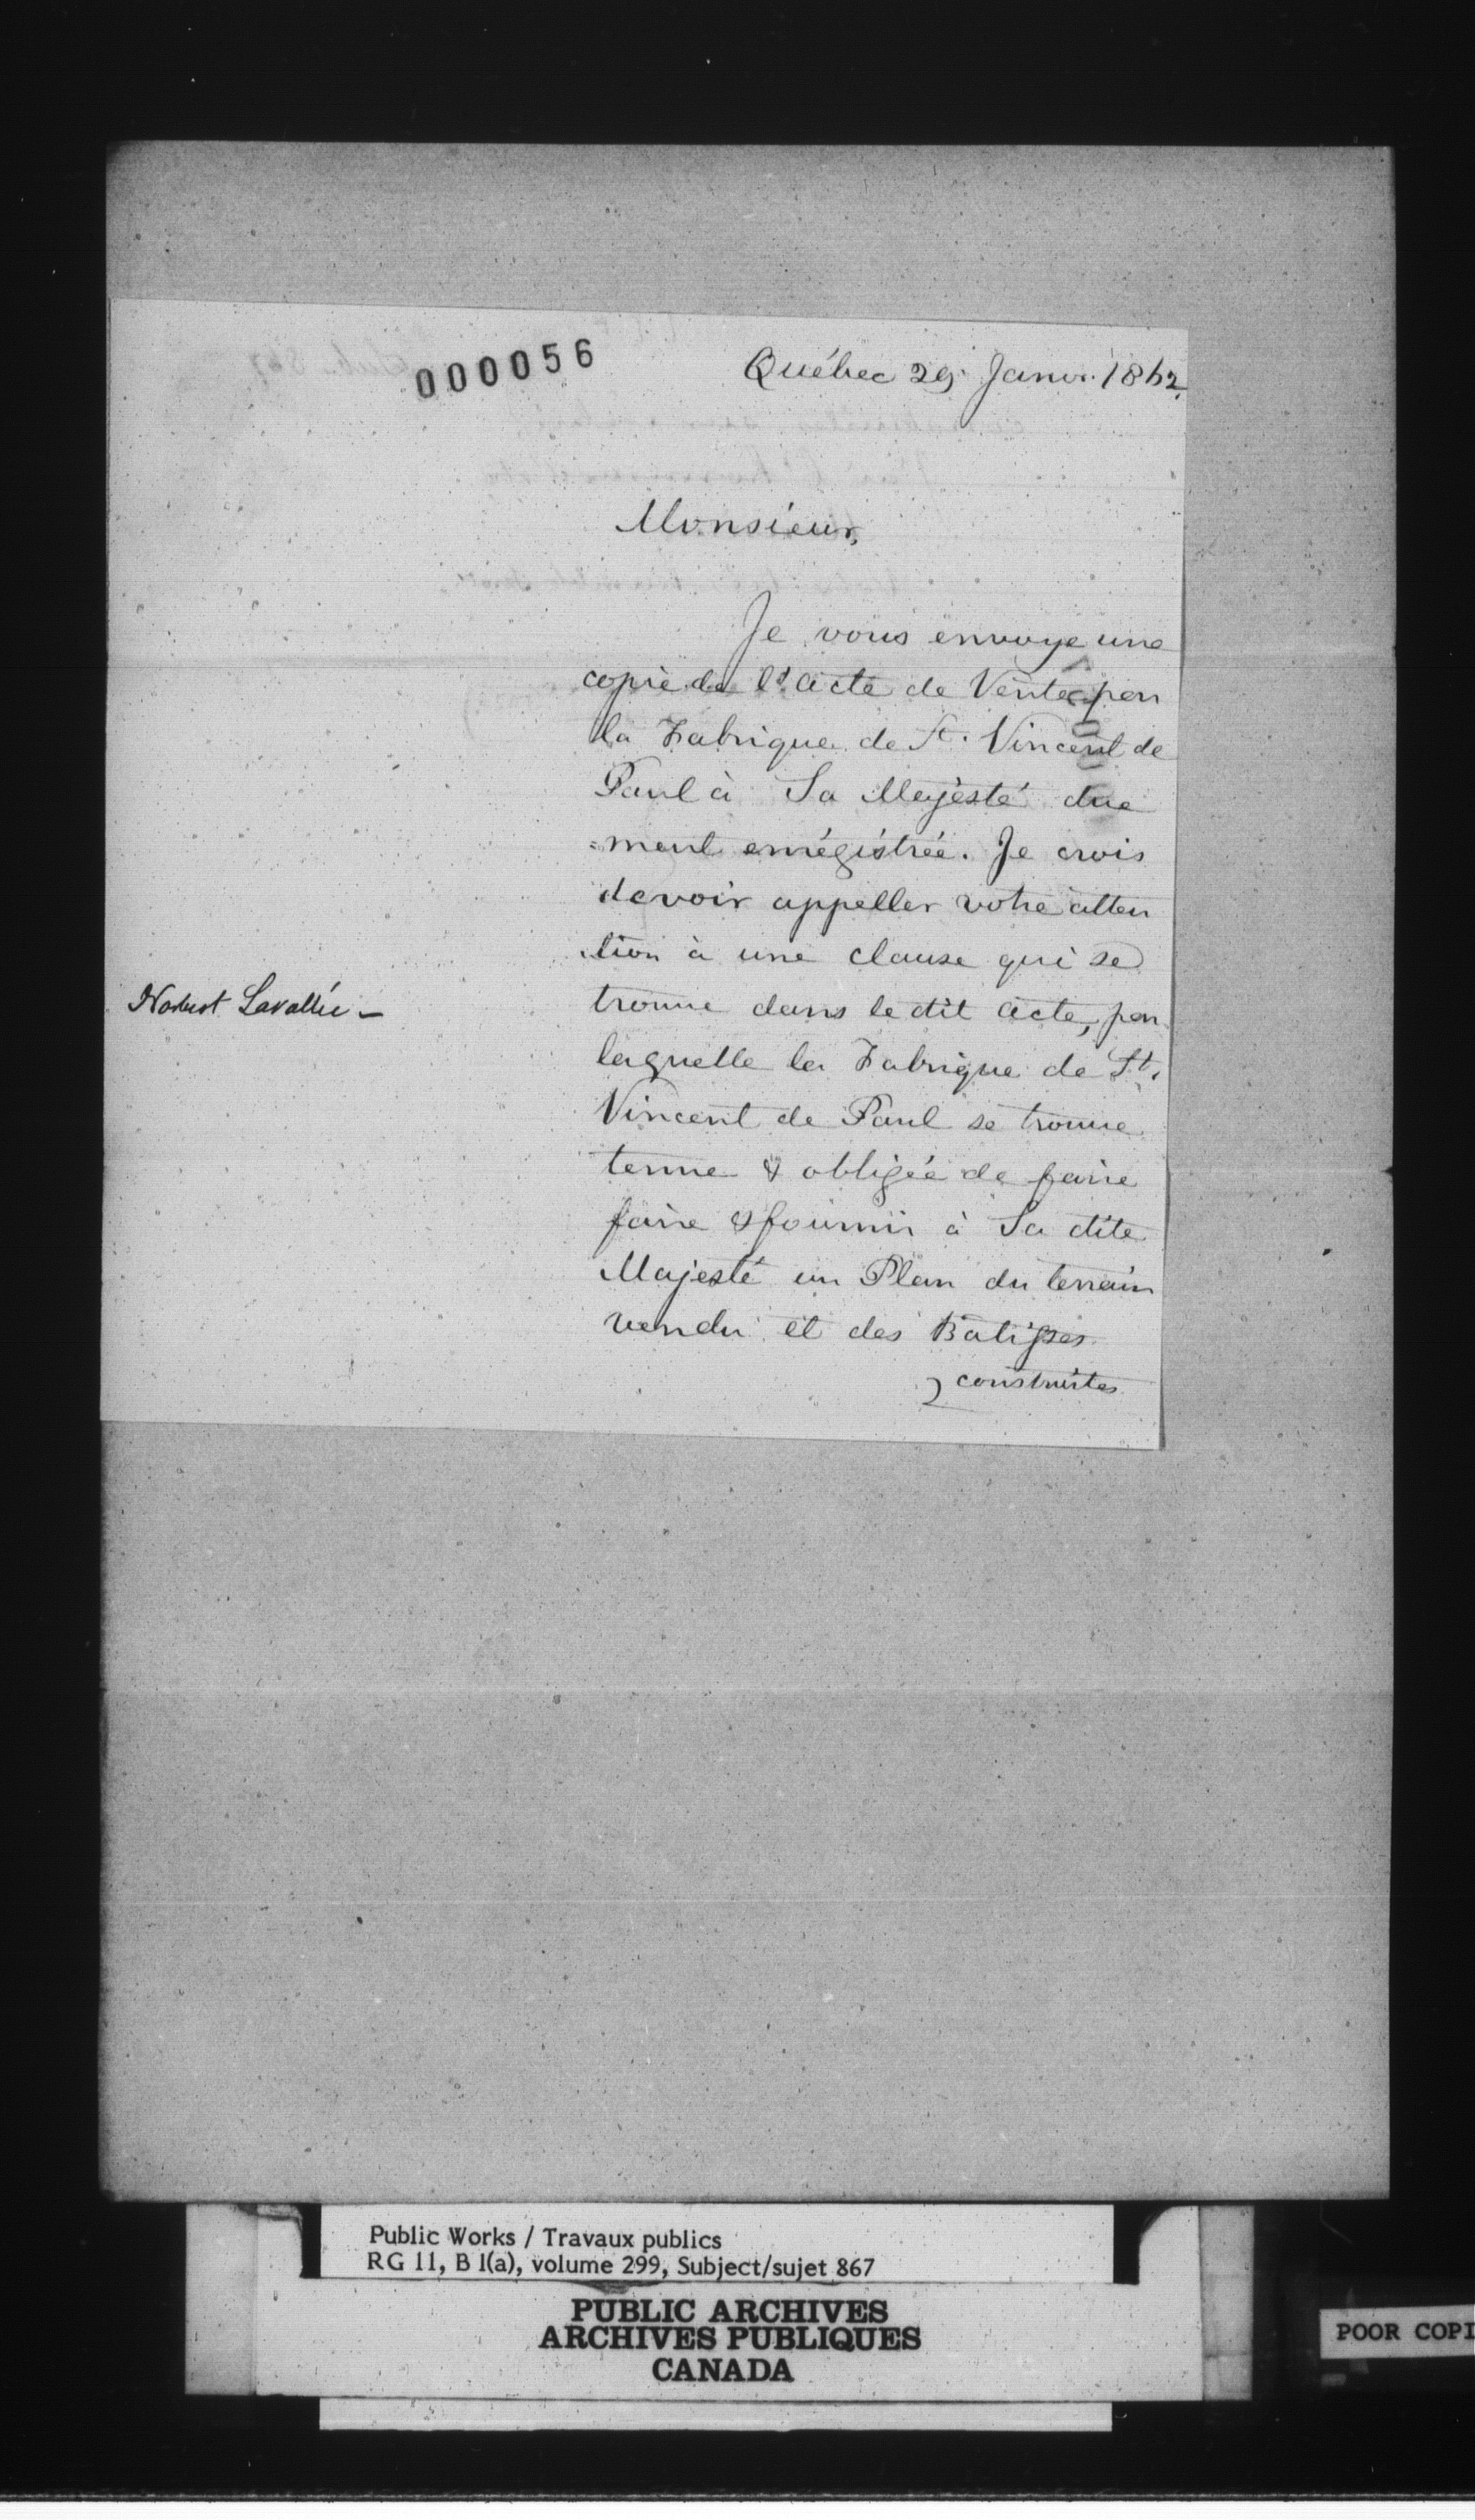 000056
Québec 29 Janvr. 1862.
Monsieur,
Je vous envoye une
copie de l'acte de Vente par
la Fabrique de St. Vincent de
Paul à Sa Majèsté due
=ment enrégistrée. Je crois
devoir appeller votre atten
tion à une clause qui se
trouve dans le dit acte, par
laquelle la Fabrique de St.
Vincent de Paul se trouve
tenue & obligée de faire
faire & fournir à Sa dite
Majesté un Plan du terrain
vendu et des Batisses
construites
Norbert Lavallée -
Public Works / Travaux publics
RG 11, B 1(a), volume 299, Subject/sujet 867
PUBLIC ARCHIVES
ARCHIVES PUBLIQUES
CANADA
POOR COPI